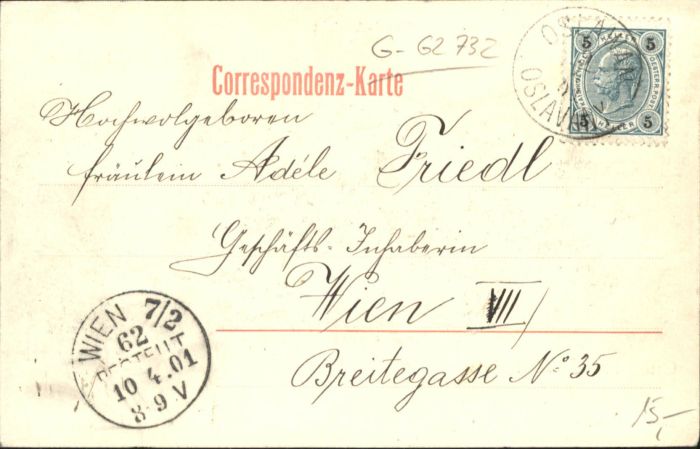 G-62732
Correspondenz-Karte
Hochwolgeboren
fräulein Adéle Friedl
Geschäfts-Inhaberin
Wien VII/
Breitegasse No. 35
WIEN 7/2
62
BESTELLT
10 4.01
8-9 V
OSLAVAN
5 5
5 5
15,-